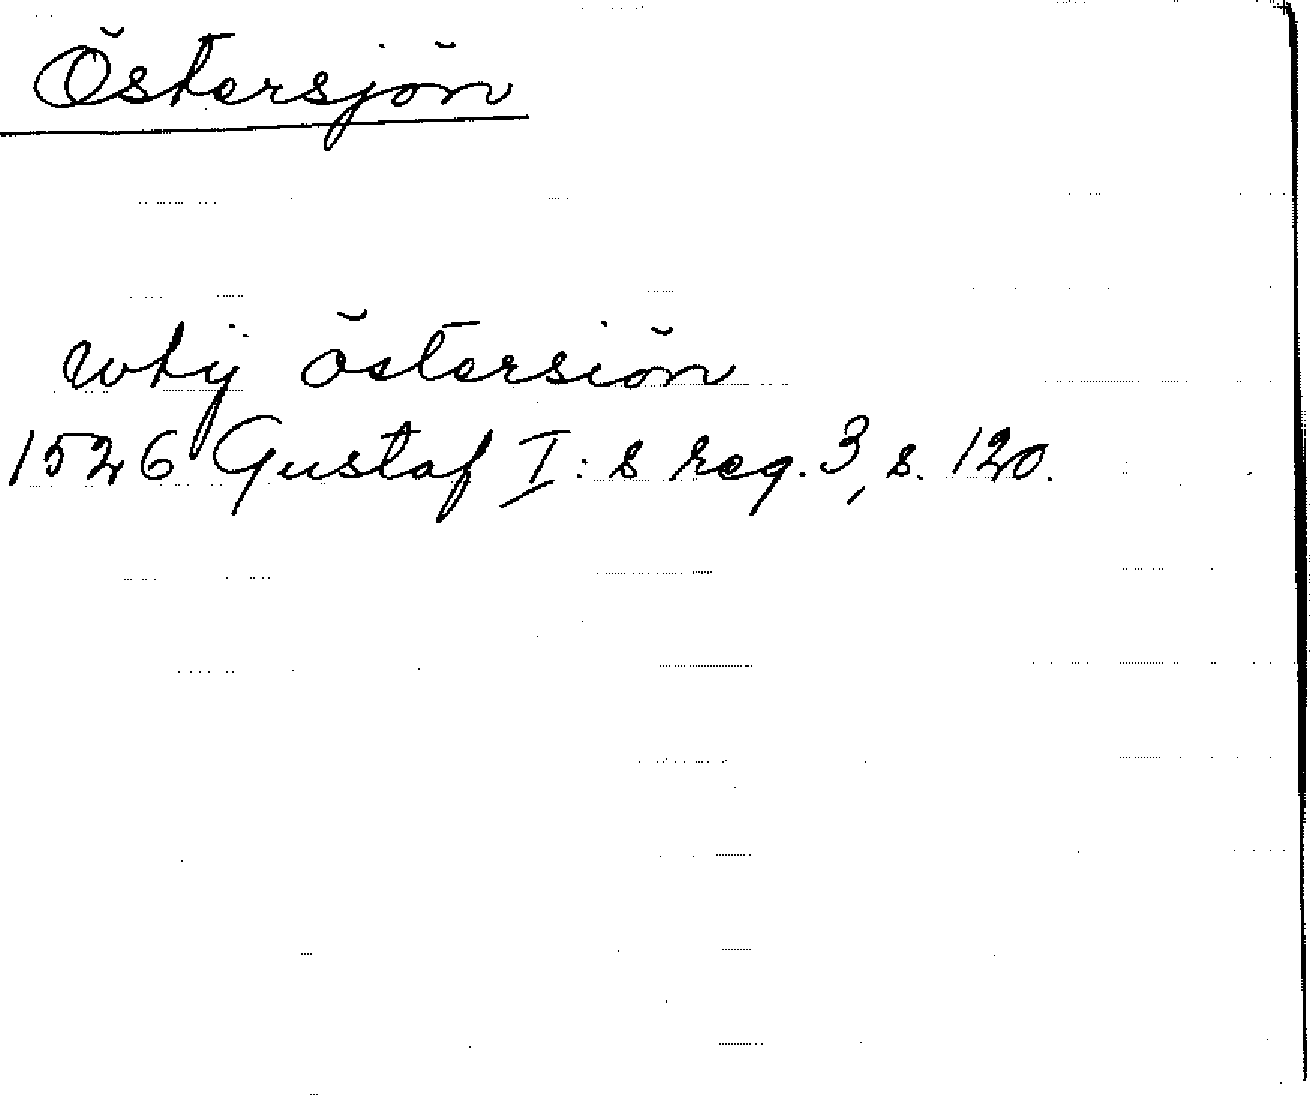 Östersjön
wtÿ östersiön
1526 Gustaf I:s reg. 3, s. 120.